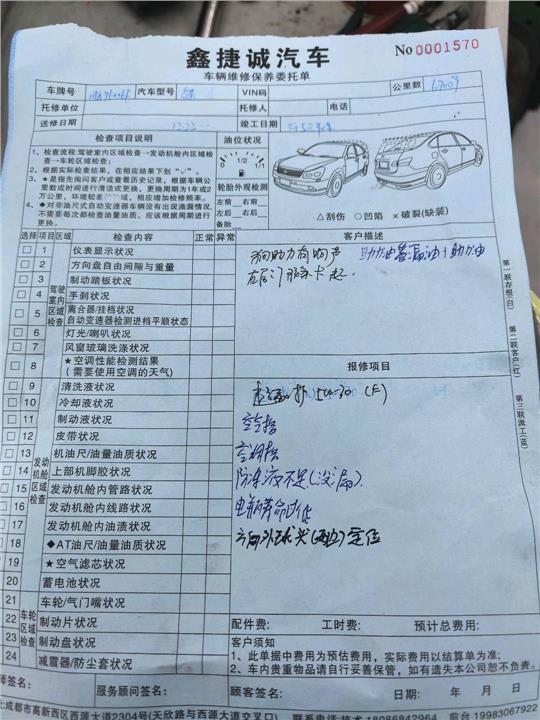 鑫捷诚汽车
车辆维修保养委托单
No 0001570
车牌号 汽车型号 VIN码 公里数 67009
托修单位 托修人 电话
送修日期 竣工日期
检查项目说明
油位状况
客户描述
1、检查流程:驾驶室内区域检查→发动机舱内区域检查→车轮区域检查;
2、根据实际检查结果,在相应结果下划“√”。
3、★是指先询问客户或查看历史记录,根据车辆公里数或时间进行清洁或更换,更换周期为1年或2万公里,环境较差 域,相应增加检修频率。
4、◆对非油尺式自动变器车辆没有出现滴漏情况,不需要每次都检查油量油质,应该根据周期进行更换。
0 1/2 1
轮胎外观检测
左前 右前
左后 右后
备胎
△刮伤 ○凹陷 ×破裂(缺装)
选择 项目 区域 检查内容 正常 异常
驾驶室内区域检查
1 仪表显示状况
2 方向盘自由间隙与重量
3 制动踏板状况
4 手刹状况
5 离合器/挂档状况
自动变速器检测进档平顺状态
6 灯光/喇叭状况
7 风窗玻璃洗涤状况
8 ★空调性能检测结果
(需要使用空调的天气)
发动机舱区域检查
9 清洗液状况
10 冷却液状况
11 制动液状况
12 皮带状况
13 机油尺/油量油质状况
14 上部机脚胶状况
15 发动机舱内管路状况
16 发动机舱内线路状况
17 发动机舱内油渍状况
18 ◆AT油尺/油量油质状况
19 ★空气滤芯状况
20 蓄电池状况
车轮区域检查
21 车轮/气门嘴状况
22 制动片状况
23 制动盘状况
24 减震器/防尘套状况
方向助力有响声 助力油管漏油+助力油
左后门胶条卡起
报修项目
5W-30
空气格
空调格
防冻液不足(没漏)
电瓶寿命过低
方向外球头(两边)定位
配件费: 工时费: 预计总费用:
客户须知
1、此单据中费用为预估费用,实际费用以结算单为准;
2、车内贵重物品请自行妥善保管,如有遗失本公司恕不负责。
师签名: 服务顾问签名: 顾客签名: 日期: 年 月 日
址:成都市高新西区西源大道2304号(天欣路与西源大道交叉口) 联系电话:技术 18086842964 前台 19983067922
第一联存根(白)
第二联客户(红)
第三联派工(蓝)